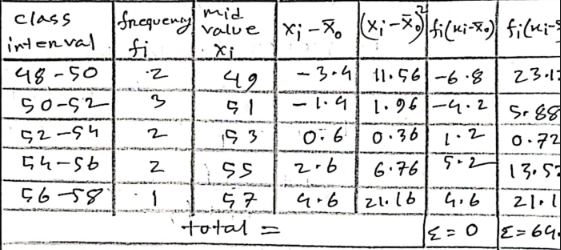 class interval | frequency fi | mid value xi | xi - x̄0 | (xi - x̄)² | fi(xi - x̄0) | fi(xi - x̄
48-50 | 2 | 49 | -3.4 | 11.56 | -6.8 | 23.1
50-52 | 3 | 51 | -1.4 | 1.96 | -4.2 | 5.88
52-54 | 2 | 53 | 0.6 | 0.36 | 1.2 | 0.72
54-56 | 2 | 55 | 2.6 | 6.76 | 5.2 | 13.5
56-58 | 1 | 57 | 4.6 | 21.16 | 4.6 | 21.1
total = | Σ = 0 | Σ = 64.